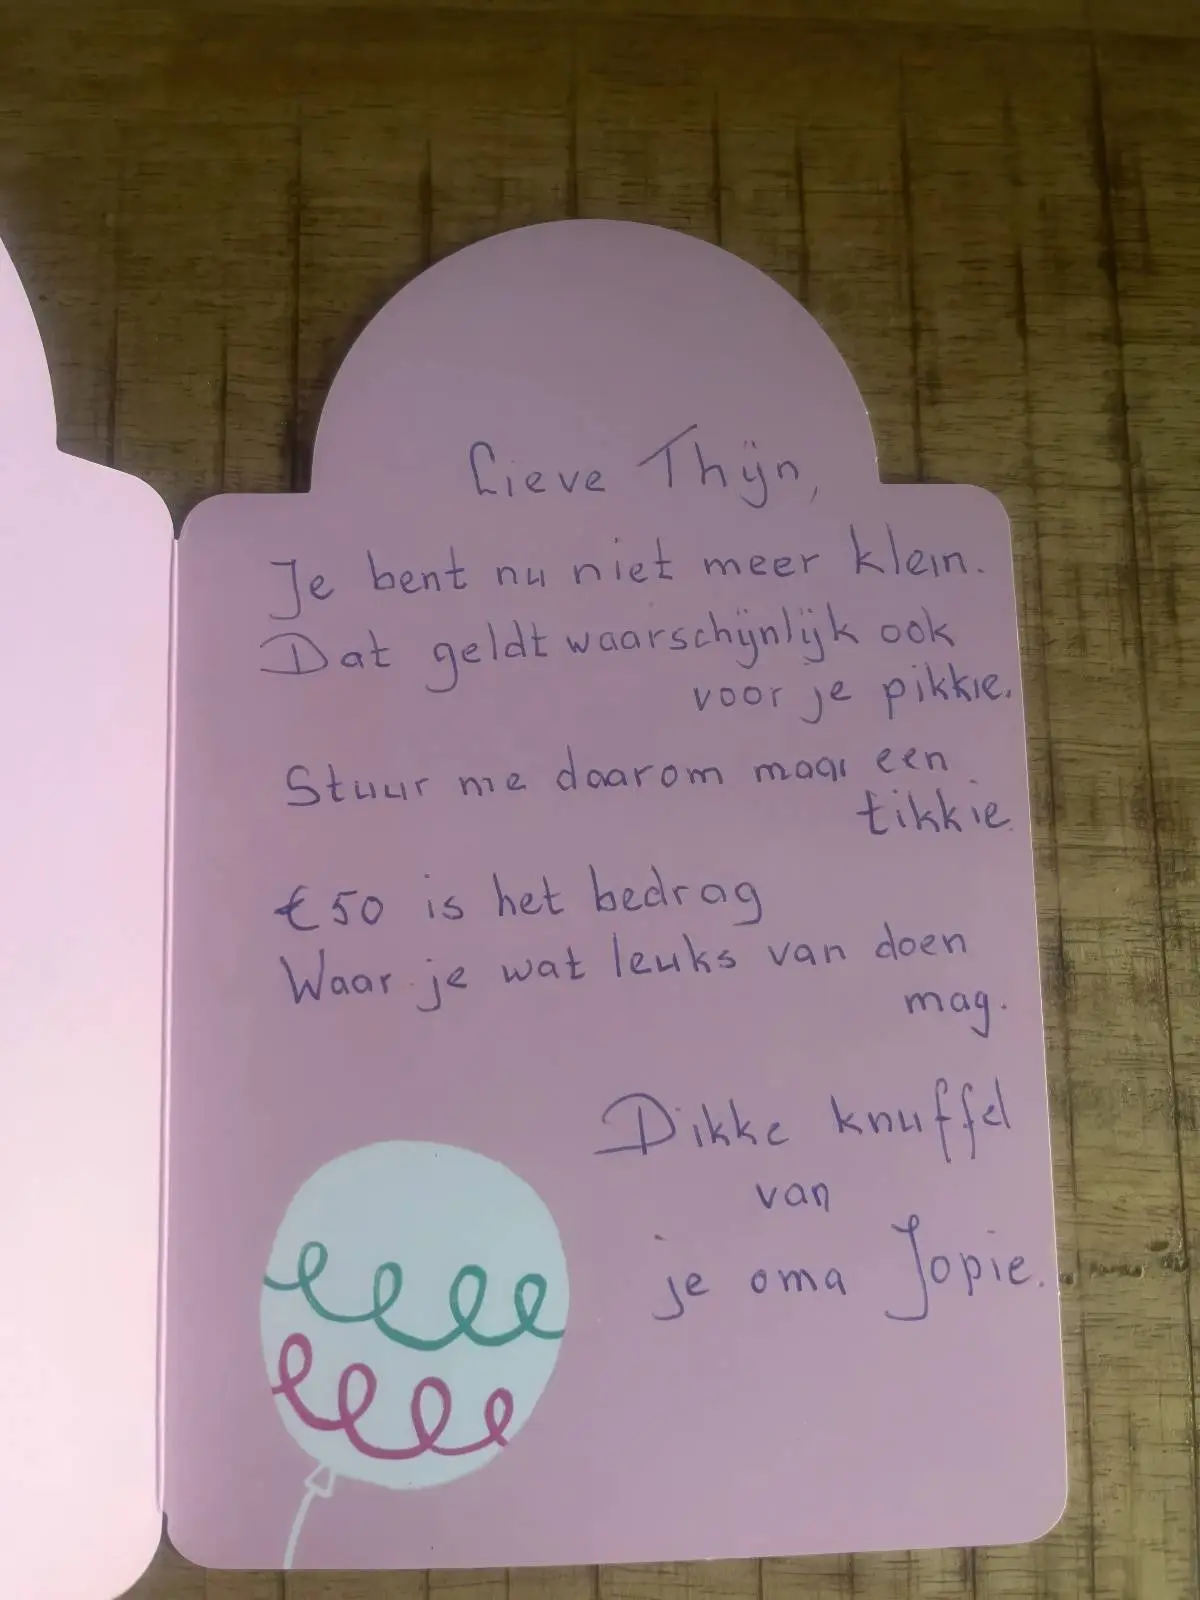 Lieve Thijn,
Je bent nu niet meer klein.
Dat geldt waarschijnlijk ook
voor je pikkie.
Stuur me daarom maar een
tikkie.
€50 is het bedrag
Waar je wat leuks van doen
mag.
Dikke knuffel
van
je oma Jopie.